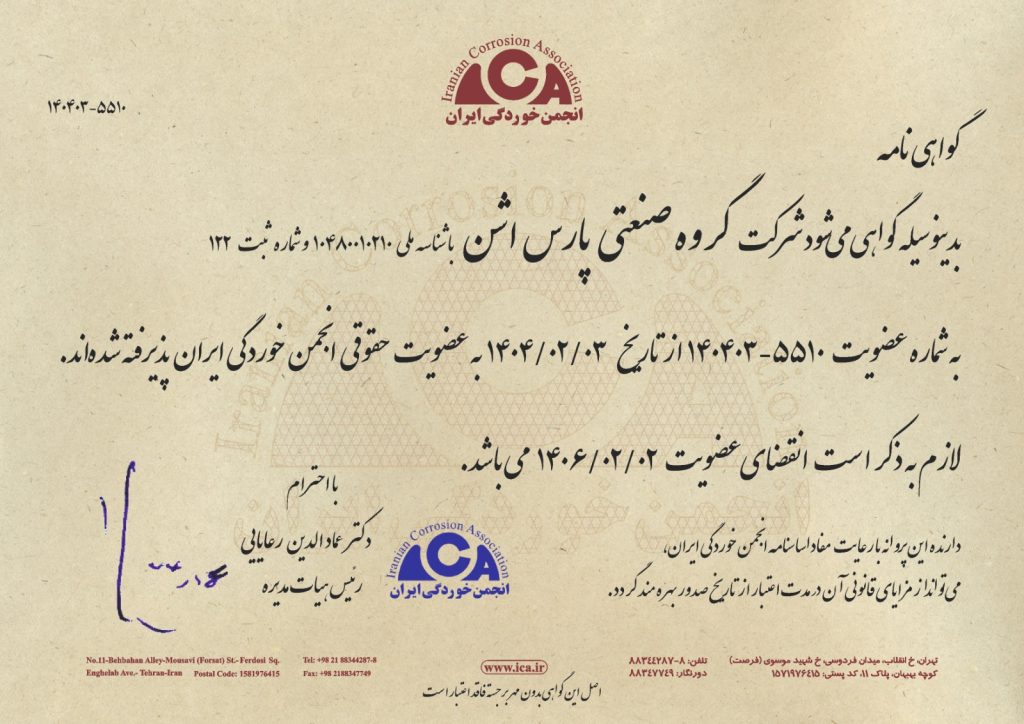 Iranian Corrosion Association
ICA
انجمن خوردگی ایران
۱۴۰۴۰۳-۵۵۱۰
گواهی نامه
بدینوسیله گواهی می شود شرکت گروه صنعتی پارس اشن با شناسه ملی ۱۰۴۸۰۰۱۰۲۱۰ و شماره ثبت ۱۲۲
به شماره عضویت ۵۵۱۰-۱۴۰۴۰۳ از تاریخ ۱۴۰۴/۰۲/۰۳ به عضویت حقوقی انجمن خوردگی ایران پذیرفته شده‌اند.
لازم به ذکر است انقضای عضویت ۱۴۰۶/۰۲/۰۲ می باشد.
با احترام
دکتر عماد الدین رعایایی
رئیس هیات مدیره
Iranian Corrosion Association
ICA
انجمن خوردگی ایران
دارنده این پروانه با رعایت مفاد اساسنامه انجمن خوردگی ایران،
می تواند از مزایای قانونی آن در مدت اعتبار از تاریخ صدور بهره مند گردد.
No.11-Behbahan Alley-Mousavi (Forsat) St.- Ferdosi Sq.
Enghelab Ave.- Tehran-Iran Postal Code: 1581976415
Tel: +98 21 88344287-8
Fax: +98 2188347749
www.ica.ir
تلفن: ۸-۸۸۳۴۴۲۸۷
دورنگار: ۸۸۳۴۷۷۴۹
تهران، خ انقلاب، میدان فردوسی، خ شهید موسوی (فرصت)
کوچه بهبهان، پلاک ۱۱، کد پستی: ۱۵۷۱۹۷۶۴۱۵
اصل این گواهی بدون مهر برجسته فاقد اعتبار است